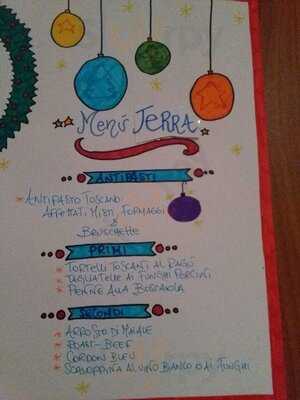 Menù TERRA
ANTIPASTI
ANTIPASTO TOSCANO
AFFETTATI MISTI, FORMAGGI
&
BRUSCHETTE
PRIMI
TORTELLI TOSCANI AL RAGÙ
TAGLIATELLE AI FUNGHI PORCINI
PENNE ALLA BOSCAIOLA
SECONDI
ARROSTO DI MAIALE
ROAST-BEEF
CORDON BLEU
SCALOPPINA AL VINO BIANCO O AI FUNGHI